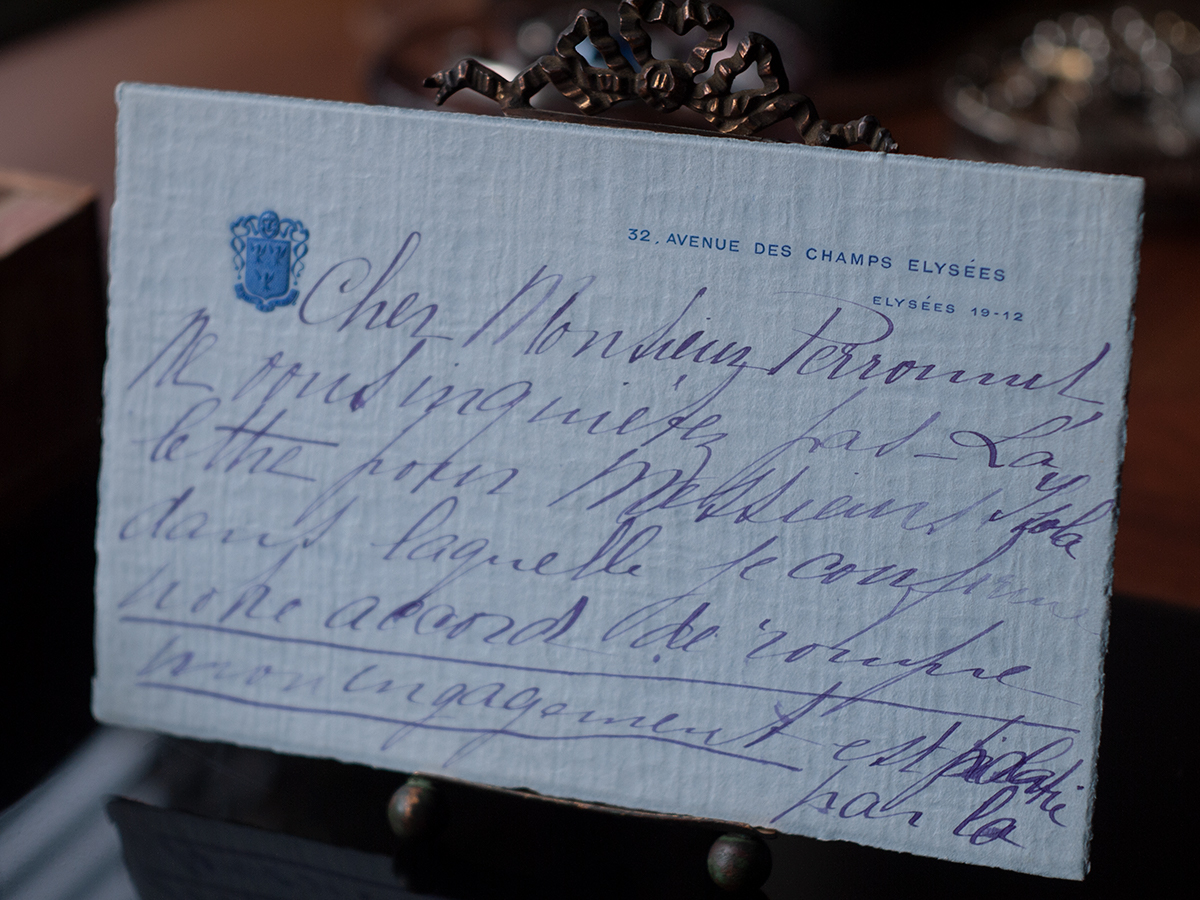 32, AVENUE DES CHAMPS ELYSÉES
ELYSÉES 19-12
Cher Monsieur Perronnet
Ne vous inquiétez pas – La
lettre pour Messieurs Isola
dans laquelle je confirme
notre accord de rompre
mon engagement est
par la